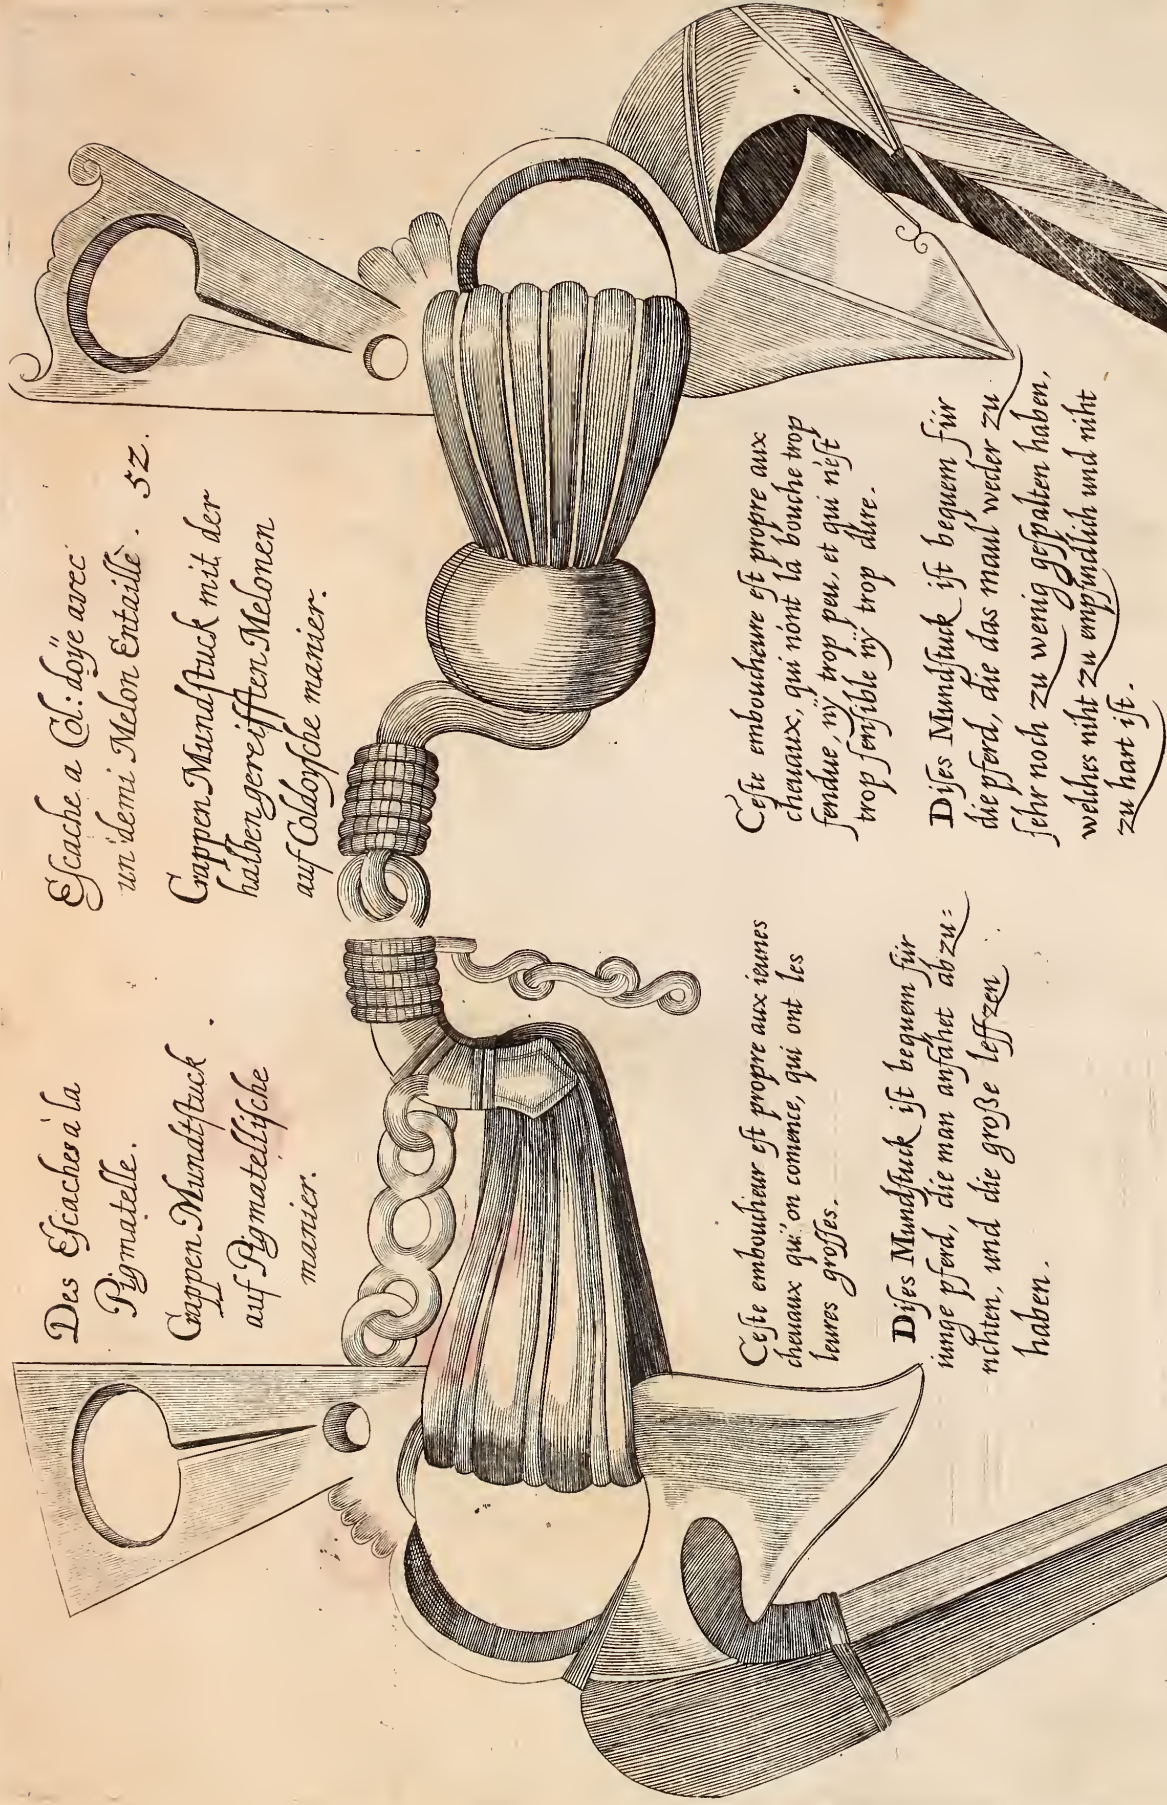 Des Eſcaches à la
Pigmatelle.
Cappen Mundtſtuck
auf Pigmatelliſche
manier.
Eſcache a Col: doÿe avec
un demi Melon Entaille. 52.
Cappen Mundſtuck mit der
halben gereifften Melonen
auf Coldoyſche manier.
Ceſte emboucheur eſt propre aux ieunes
cheuaux qu'on comence, qui ont les
leures groſſes.
Diſes Mundſtuck iſt bequem für
iunge pferd, die man anfahet abzu=
richten, und die große leffzen
haben.
Ceſte emboucheure eſt propre aux
cheuaux, qui n'ont la bouche trop
fendue, nÿ trop peu, et qui n'eſt
trop ſenſible nÿ trop dure.
Diſes Mundſtuck iſt bequem für
die pferd, die das maul weder zu
ſehr noch zu wenig geſpalten haben,
welches niht zu empfindlich und niht
zu hart iſt.